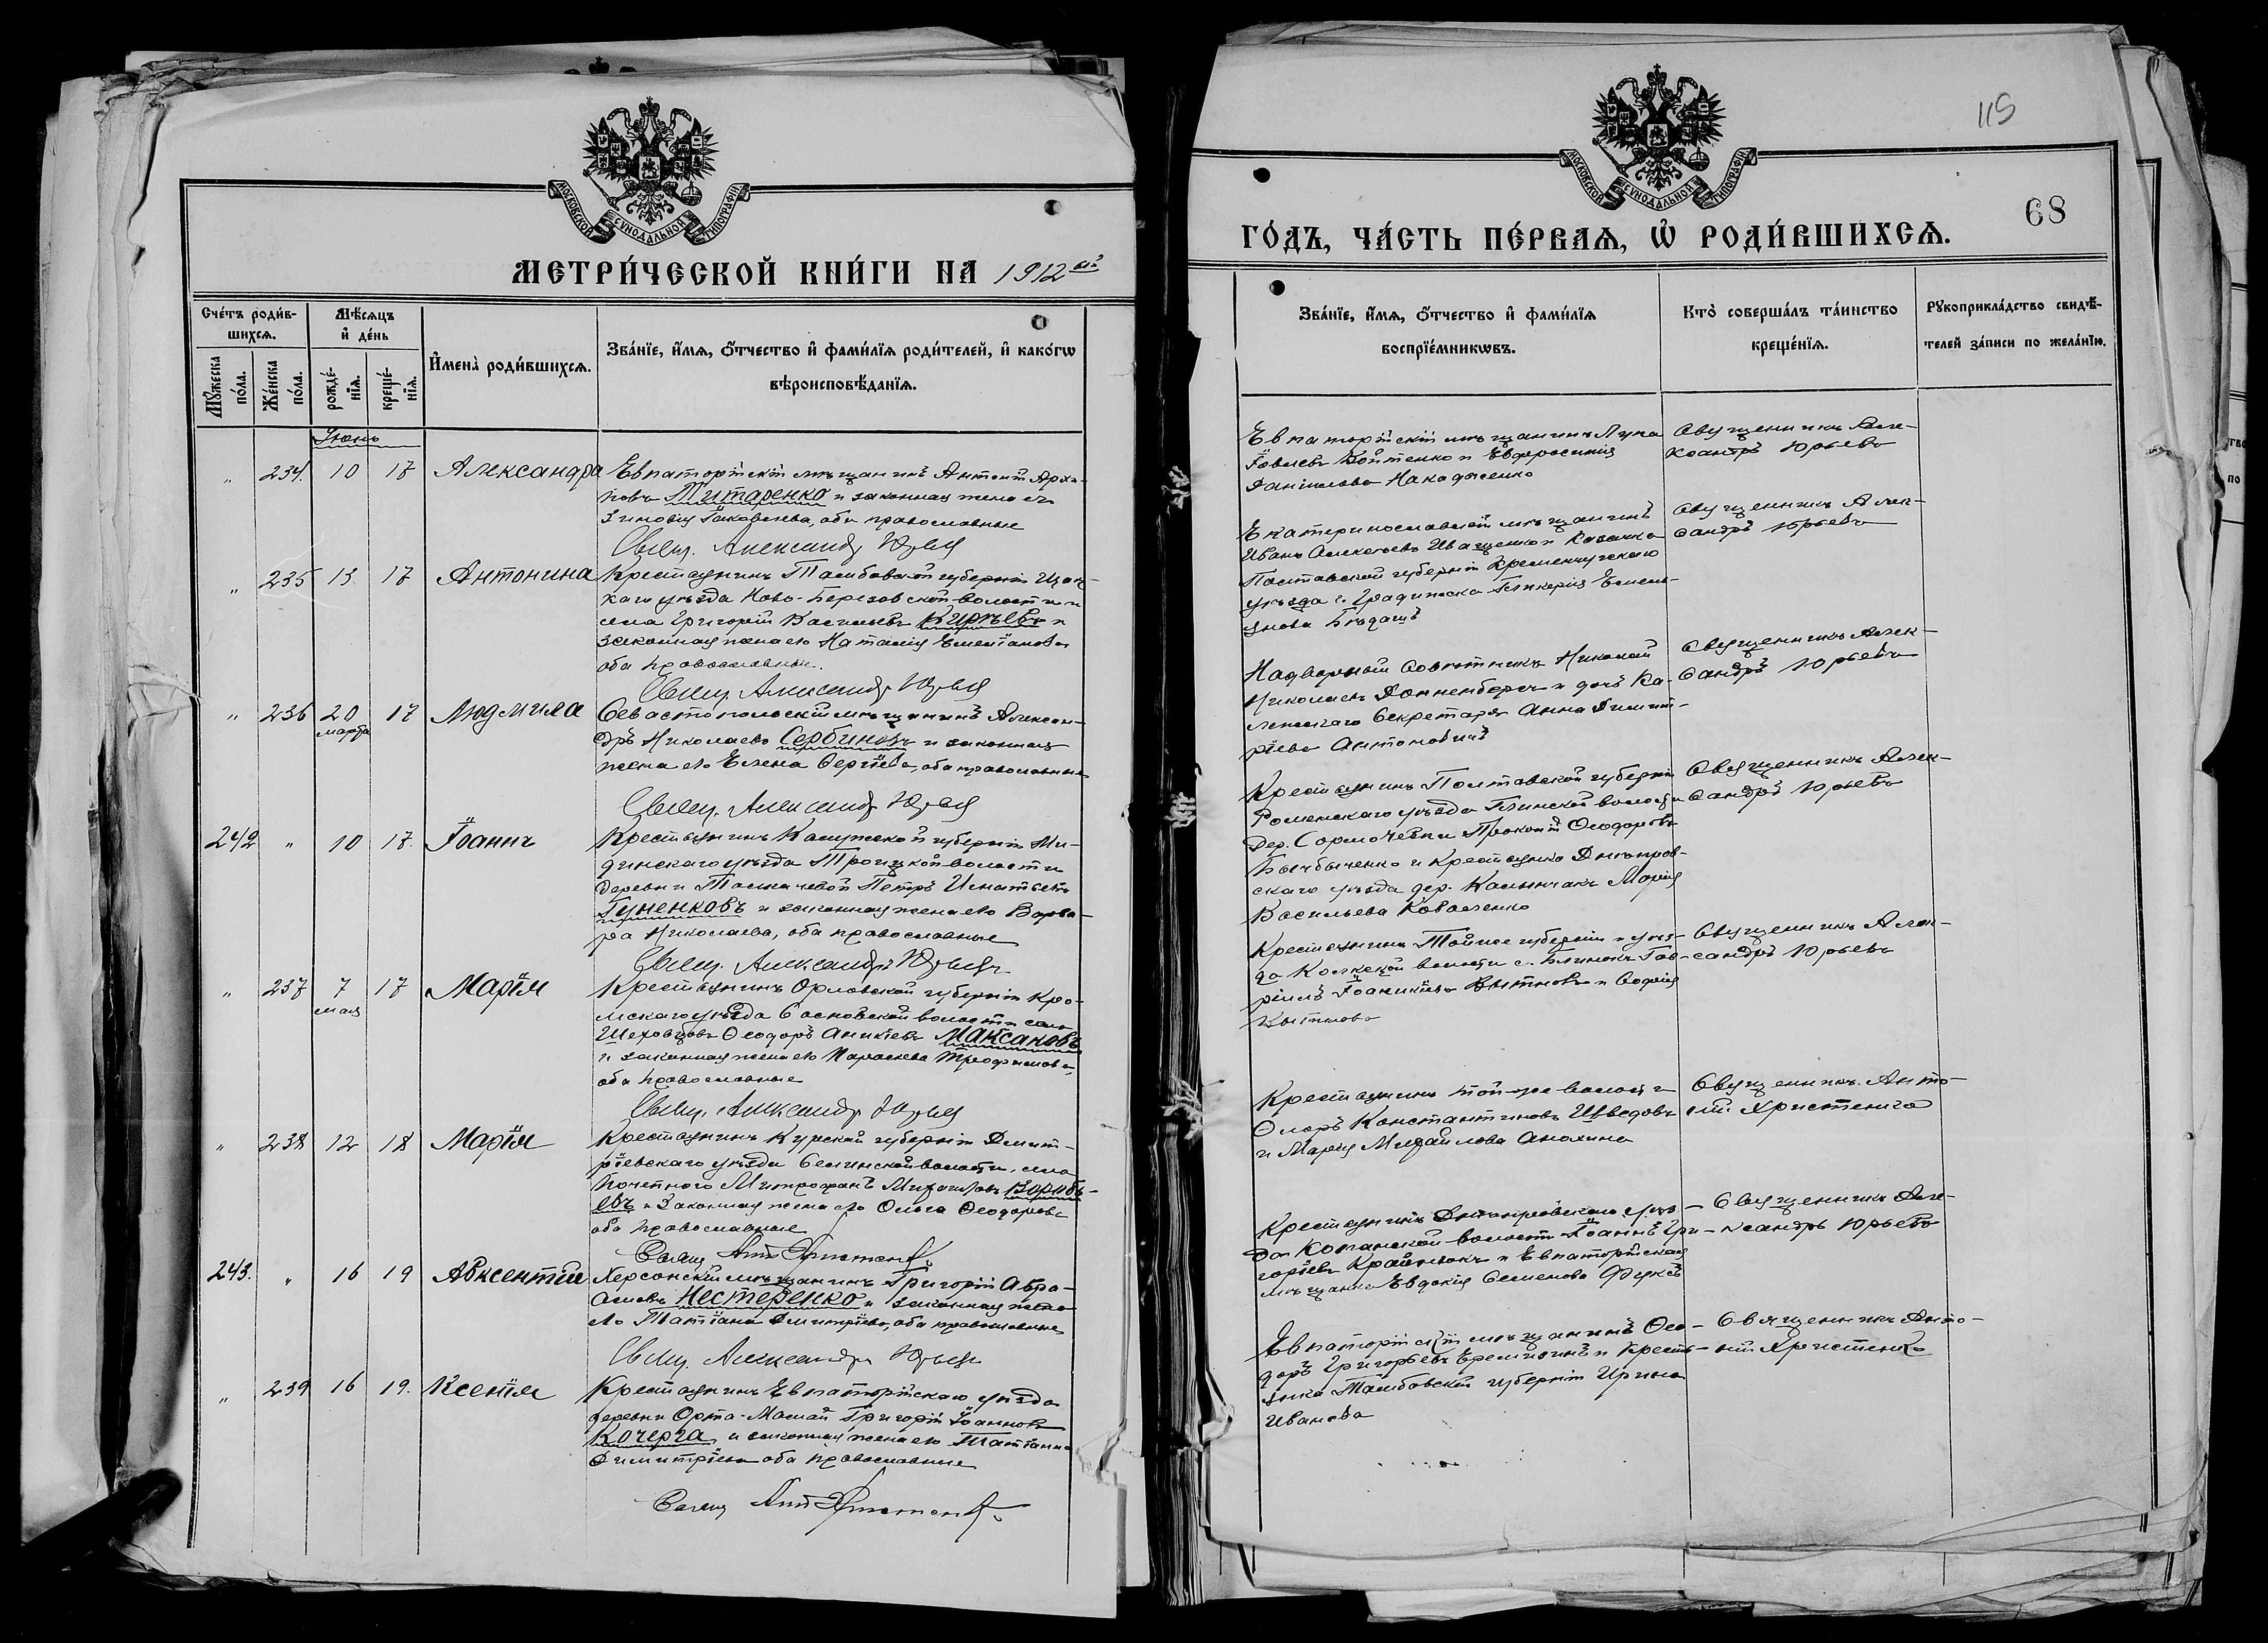 МОСКОВСКОЙ СѴНОДАЛЬНОЙ ТИПОГРАФІИ
МЕТРИ́ЧЕСКОЙ КНИ́ГИ НА 1912ый
Сче́тъ роди́в-
шихся.
Мѣ́сяцъ
и҆ де́нь
Мꙋ́жеска
по́ла.
Же́нска
по́ла.
рожде́-
нїя.
креще́-
нїя.
И҆мена̀ роди́вшихся.
Зва́нїе, и҆́мя, ѻ҆́тчество и҆ фами́лїя роди́телей, и҆ како́гѡ
вѣроисповѣ́данїя.
Іюнь
" 234. 10 17 Александра
Евпаторійскій мѣщанинъ Антоній Архи-
повъ Титаренко и законная жена его
Зиновія Іаковлева, оба православные
Свящ. Александръ Юрьев
" 235 13 17 Антонина
Крестьянинъ Тамбовской губерніи Шац-
каго уѣзда Ново-Березовской волости и
села Григорій Васильевъ Кирѣевъ и
законная жена его Наталія Емеліанова
оба православные.
Свящ. Александръ Юрьев
" 236 20 марта 17 Людмила
Севастопольскій мѣщанинъ Алексан-
дръ Николаевъ Сербиновъ и законная
жена его Елена Сергіева, оба православные
Свящ. Александръ Юрьев
242 " 10 17. Іоаннъ
Крестьянинъ Калужской губерніи Ме-
динскаго уѣзда Троицкой волости
деревни Толкачевой Петръ Игнатьевъ
Гуненковъ и законная жена его Варва-
ра Николаева, оба православные
Свящ. Александръ Юрьевъ
" 237 7 мая 17 Марія
Крестьянинъ Орловской губерніи Кро-
мскаго уѣзда Сосновской волости села
Шеховцова Ѳеодоръ Аникіевъ Максаковъ
и законная жена его Параскева Трофимова,
оба православные
Свящ. Александръ Юрьев
" 238 12 18 Марія
Крестьянинъ Курской губерніи Дмит-
ріевскаго уѣзда волости, села
Почетного Митрофанъ Михаиловъ Воробь-
евъ и Законная жена его Ольга Ѳеодорова
оба православные
Свящ. Ант Христенко
243. " 16 19 Авксентій
Херсонскій мѣщанинъ Григорій Авра-
амовъ Нестеренко и законная жена
его Татіана Димитріева, оба православные
Свящ. Александръ Юрьевъ
" 239 16 19. Ксенія
Крестьянинъ Евпаторійскаго уѣзда
деревни Орта-Мамай Григорій Іоанновъ
Кочерга и законная жена его Татіанна
Димитріева оба православные
Свящ Ант Христенко
115
68
МОСКОВСКОЙ СѴНОДАЛЬНОЙ ТИПОГРАФІИ
ГО́ДЪ, ЧА́СТЬ ПЕ́РВАЯ, Ѡ҆ РОДИ́ВШИХСЯ.
Зва́нїе, и҆́мя, ѻ҆́тчество и҆ фами́лїя
воспрїе́мникѡвъ.
Кто̀ соверша́лъ та́инство
креще́нїя.
Рꙋкоприкла́дство свидѣ́-
телей за́писи по жела́нїю.
Евпаторійскій мѣщанинъ Лука
Іовлевъ Войтенко и Евфросинія
Даніилова
Священникъ Але-
ксандръ Юрьевъ
Екатеринославскій мѣщанинъ
Иванъ Алексѣевъ Иващенко и Казачка
Полтавской губерніи Кременчугскаго
уѣзда г. Градижска Гликерія Емель-
янова
Священникъ Алек-
сандръ Юрьевъ
Надворный Совѣтникъ Николай
Николаевъ Донненбергъ и дочь Ка-
Секретаря Анна Димит-
ріева Антоновичъ
Священникъ Алек-
сандръ Юрьевъ
Крестьянинъ Полтавской губерніи
Роменскаго уѣзда Глинской волости
дер. Прокопій Ѳеодоровъ
и Крестьянка Днѣпров-
скаго уѣзда дер. Каланчакъ Марія
Васильева Коваленко
Священникъ Алек-
сандръ Юрьевъ
Крестьянинъ Той же губерніи и уѣз-
да волости с. Гав-
ріилъ Іоанникіевъ и Софія
Священникъ Алек-
сандръ Юрьевъ
Крестьянинъ той же волости
Ѳлоръ Константиновъ Шведовъ
и Марія Михайлова Анохина
Священникъ Анто-
ній Христенко
Крестьянинъ Днѣпровскаго уѣз-
да Копанской волости Іоаннъ Гри-
горіевъ Крайнюкъ и Евпаторійская
мѣщанка Евдокія Семенова
Священникъ Але-
ксандръ Юрьевъ
Евпаторійскій мѣщанинъ Ѳео-
доръ Григорьевъ и Кресть-
янка Тамбовской губерніи Ирина
Иванова
Священникъ Анто-
ній Христенко